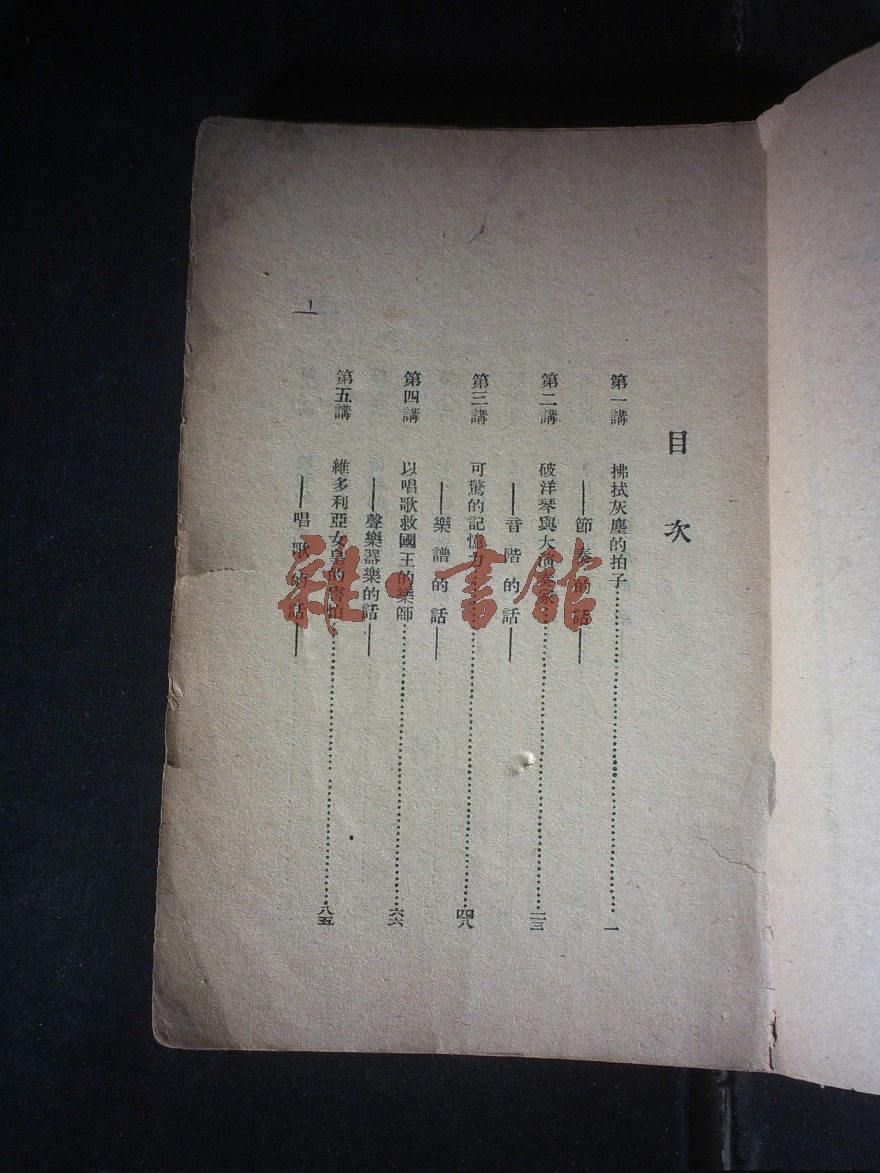 目次
第一講 拂拭灰塵的拍子 一
——節奏的話——
第二講 破洋琴與大演奏家 二三
——音階的話——
第三講 可驚的記憶力 四八
——樂譜的話——
第四講 以唱歌救國王的樂師 六六
——聲樂器樂的話——
第五講 維多利亞女皇的害怕 八五
——唱歌的話——
1
雜·書館